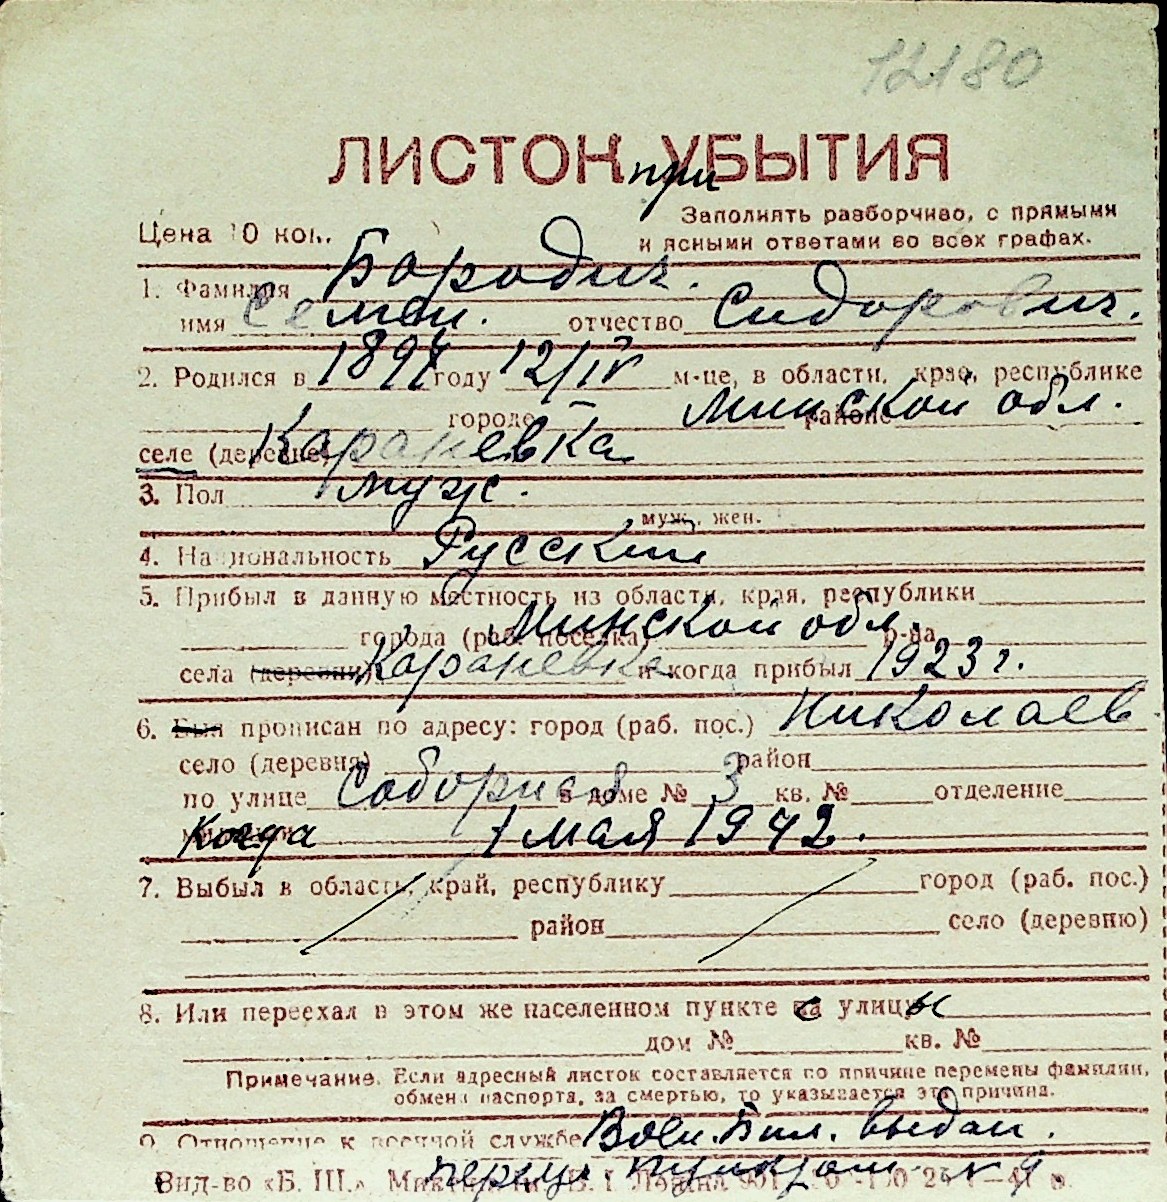 12180
ЛИСТОК УБЫТИЯ
при
Цена 10 коп. Заполнять разборчиво, с прямыми
и ясными ответами во всех графах.
1. Фамилия Бородич.
имя Семен. отчество Сидорович.
2. Родился в 1897 году 12/IV м-це, в области, крае, республике
городе Минской обл. районе
селе (деревне) Караневка
3. Пол муж.
муж., жен.
4. Национальность Русский
5. Прибыл в данную местность из области, края, республики
города (раб. поселка) Минской обл. р-на
села (деревни) Караневка и когда прибыл 1923 г.
6. Был прописан по адресу: город (раб. пос.) Николаев
село (деревня) район
по улице Соборная в доме № 3 кв. № отделение
Когда 1 мая 1942.
7. Выбыл в область, край, республику город (раб. пос.)
район село (деревню)
8. Или переехал в этом же населенном пункте с улицы
дом № кв. №
Примечание. Если адресный листок составляется по причине перемены фамилии,
обмена паспорта, за смертью, то указывается эта причина.
9. Отношение к военной службе Воен. Бил. выдан.
Вид-во «Б. Ш.»